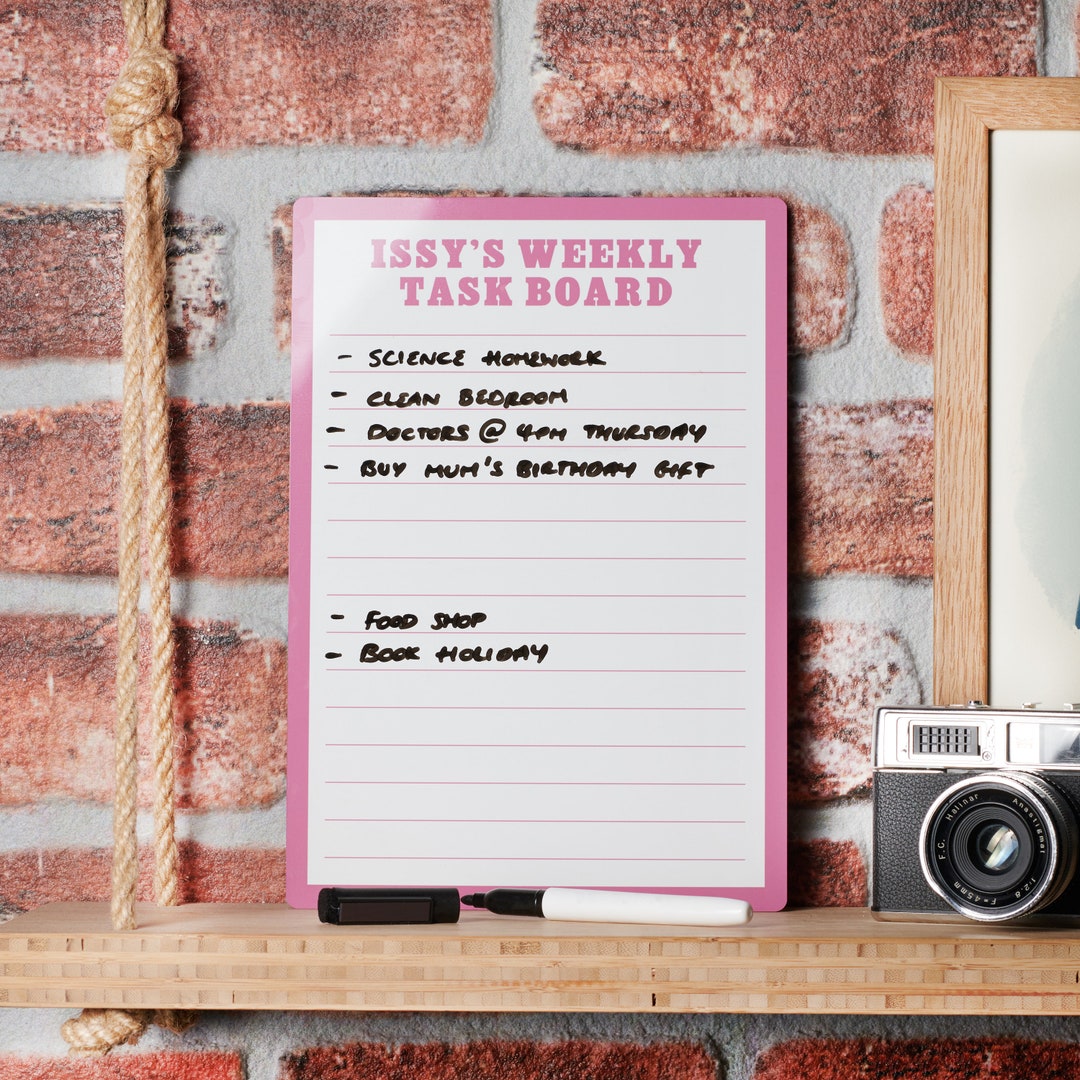 ISSY'S WEEKLY
TASK BOARD
- SCIENCE HOMEWORK
- CLEAN BEDROOM
- DOCTORS @ 4PM THURSDAY
- BUY MUM'S BIRTHDAY GIFT
- FOOD SHOP
- BOOK HOLIDAY
F.C. Halinar Anastigmat 1:2.8 F=45mm